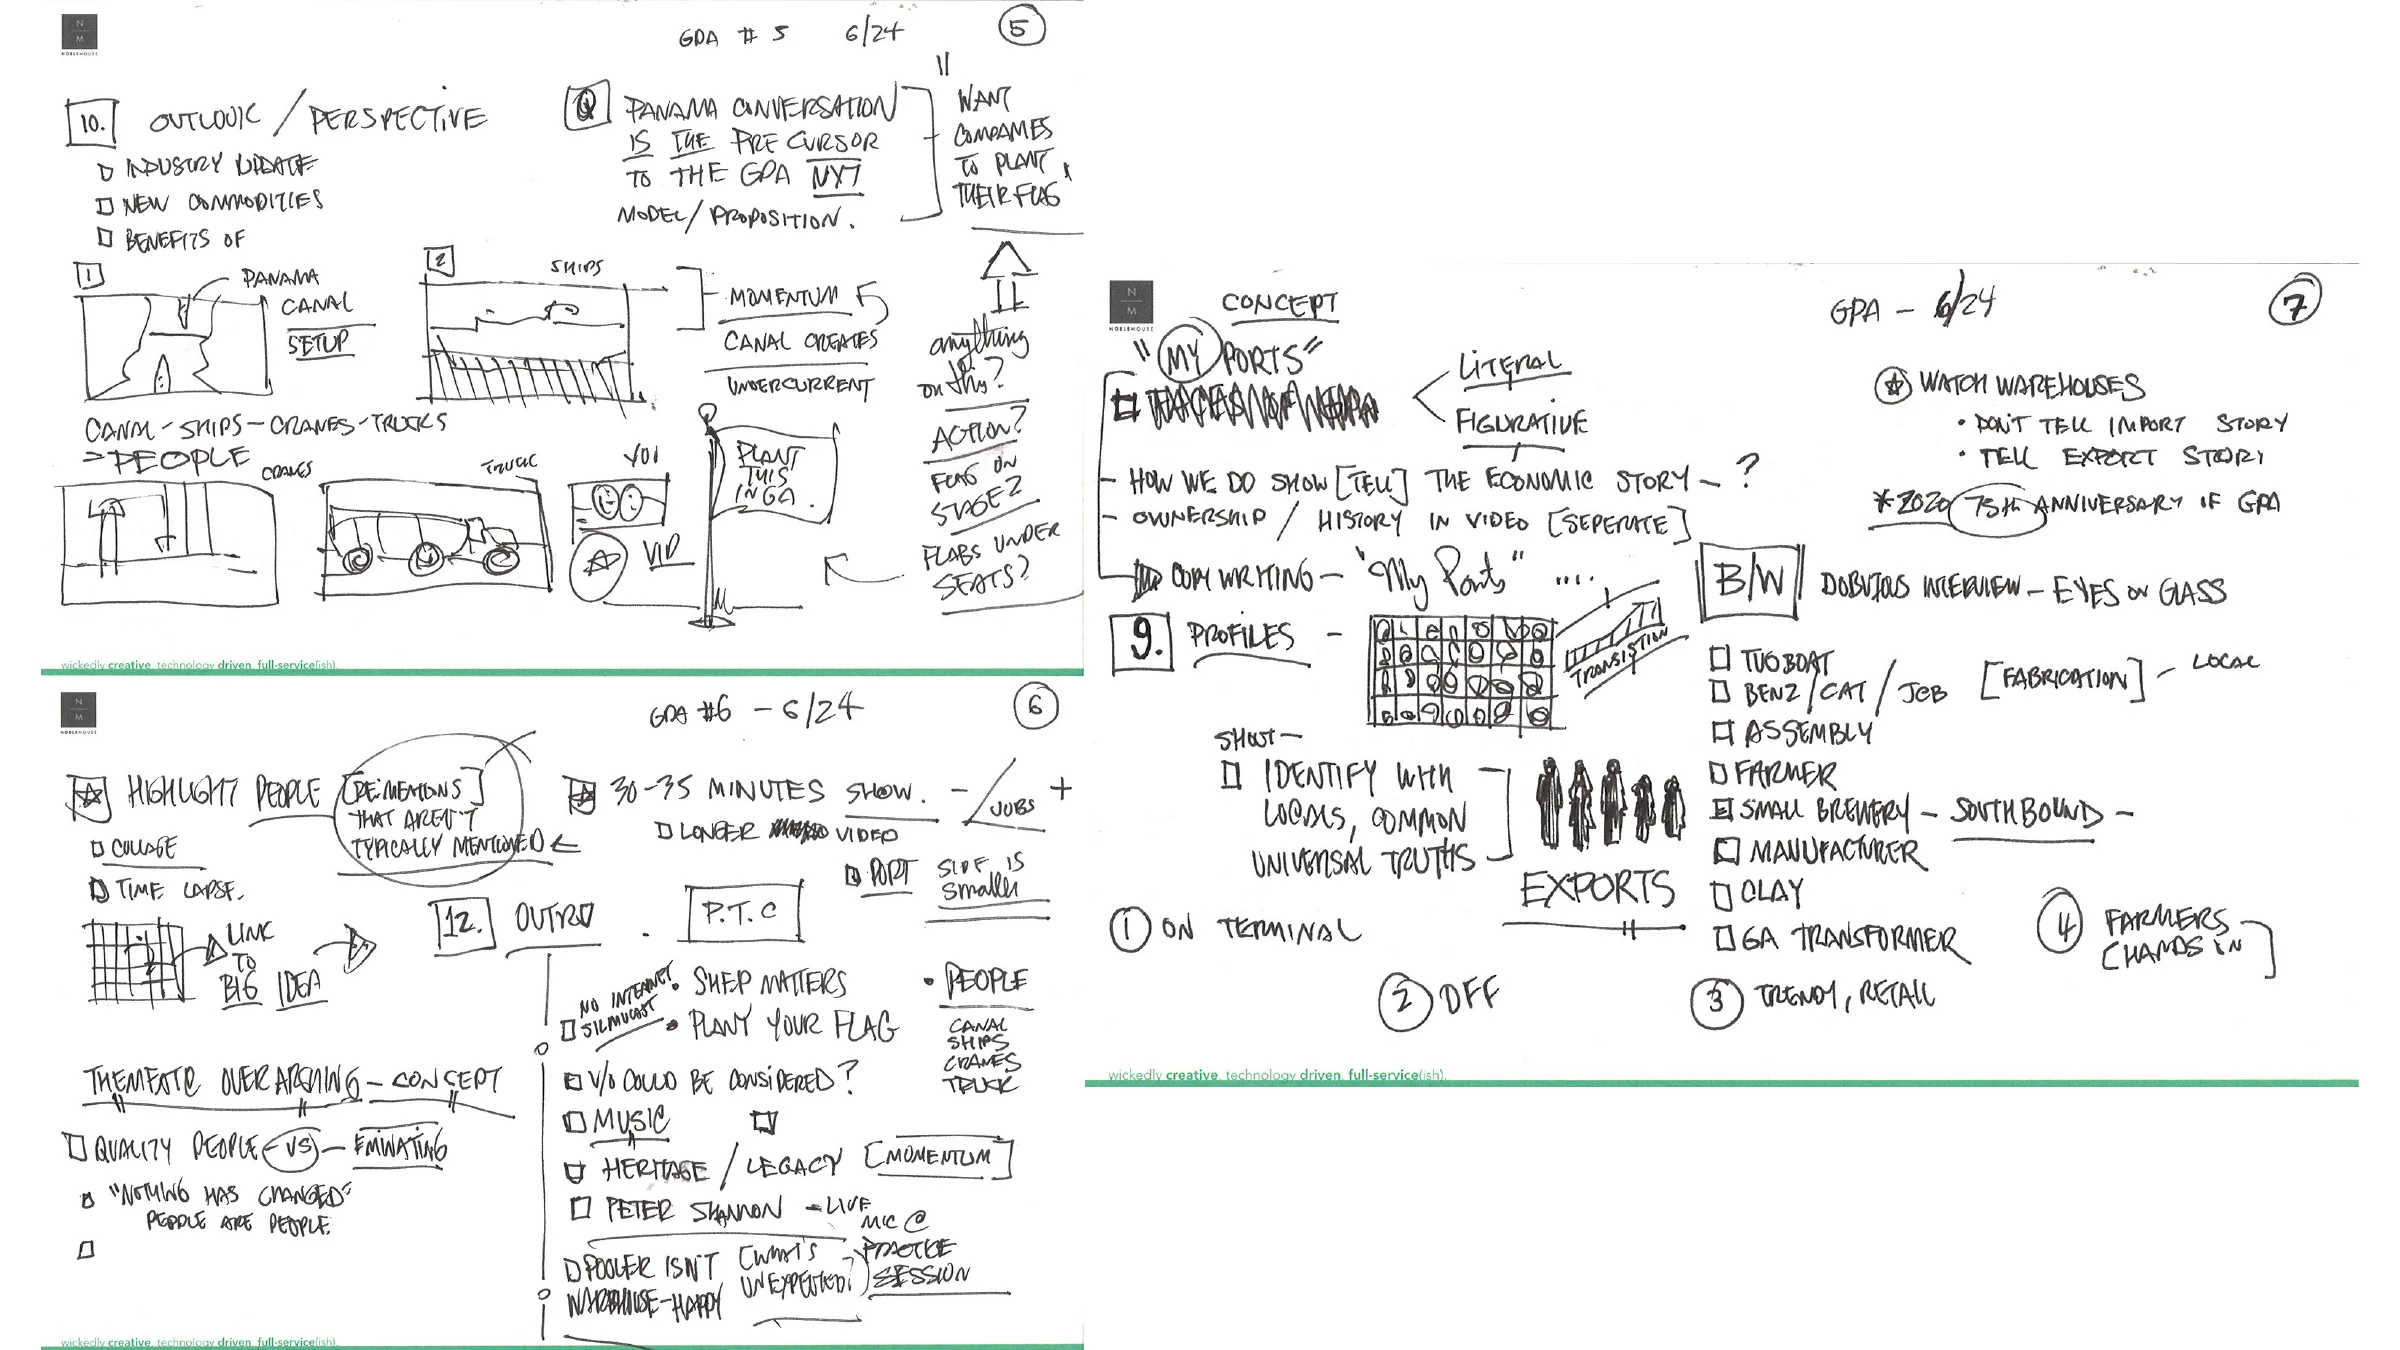 N
M
NOBLEHOUSE
GPA # 5 6/24 5
10. OUTLOOK / PERSPECTIVE
INDUSTRY UPDATE
NEW COMMODITIES
BENEFITS OF
Q PANAMA CONVERSATION
IS THE PRECURSOR
TO THE GPA NXT
MODEL/PROPOSITION.
"WANT
COMPANIES
TO PLANT
THEIR FLAG"
1
PANAMA
CANAL
SETUP
2
SHIPS
MOMENTUM
CANAL CREATES
UNDERCURRENT
anything
on this?
ACTION?
FLAG ON
STAGE?
FLAGS UNDER
SEATS?
CANAL - SHIPS - CRANES - TRUCKS
= PEOPLE
CRANES
TRUCK
YOU
VIP
PLANT
THIS
IN GA.
wickedly creative, technology driven, full-service(ish).
N
M
NOBLEHOUSE
GPA #6 - 6/24 6
HIGHLIGHT PEOPLE [DEMENSIONS]
THAT AREN'T
TYPICALLY MENTIONED
COLLAGE
TIME LAPSE.
LINK
TO
BIG IDEA
THEMEATIC OVERARCHING - CONCEPT
QUALITY PEOPLE - VS - EMINATING
"NOTHING HAS CHANGED"
PEOPLE ARE PEOPLE.
30-35 MINUTES SHOW. - / JOBS +
LONGER VIDEO
PORT SIDE IS
smaller
12. OUTRO . P.T.C
NO INTERNET
SILMUCAST
• SHEP MATTERS
• PLANT YOUR FLAG
• PEOPLE
CANAL
SHIPS
CRANES
TRUCK
V/O COULD BE CONSIDERED?
MUSIC
HERITAGE / LEGACY [MOMENTUM]
PETER SHANNON - LIVE
MIC @
PRACTICE
SESSION
POOLER ISN'T [WHAT'S
UNEXPECTED?]
WAREHOUSE-HAPPY
wickedly creative, technology driven, full-service(ish).
N
M
NOBLEHOUSE
CONCEPT
GPA - 6/24 7
"MY PORTS"
LITERAL
FIGURATIVE
- HOW WE DO SHOW [TELL] THE ECONOMIC STORY - ?
- OWNERSHIP / HISTORY IN VIDEO [SEPERATE]
COPY WRITING - "My Ports" ....
9. PROFILES -
TRANSISTION
SHOUT -
IDENTIFY WITH
LOCALS, COMMON
UNIVERSAL TRUTHS
EXPORTS
WATCH WAREHOUSES
• DON'T TELL IMPORT STORY
• TELL EXPORT STORY
* 2020 75th ANNIVERSARY IF GPA
B/W INTERVIEW - EYES ON GLASS
TUGBOAT
BENZ / CAT / JCB [FABRICATION] - LOCAL
ASSEMBLY
FARMER
SMALL BREWERY - SOUTHBOUND -
MANUFACTURER
CLAY
GA TRANSFORMER
1 ON TERMINAL
2 OFF
3 TRENDY, RETAIL
4 FARMERS
[HANDS IN]
wickedly creative, technology driven, full-service(ish).